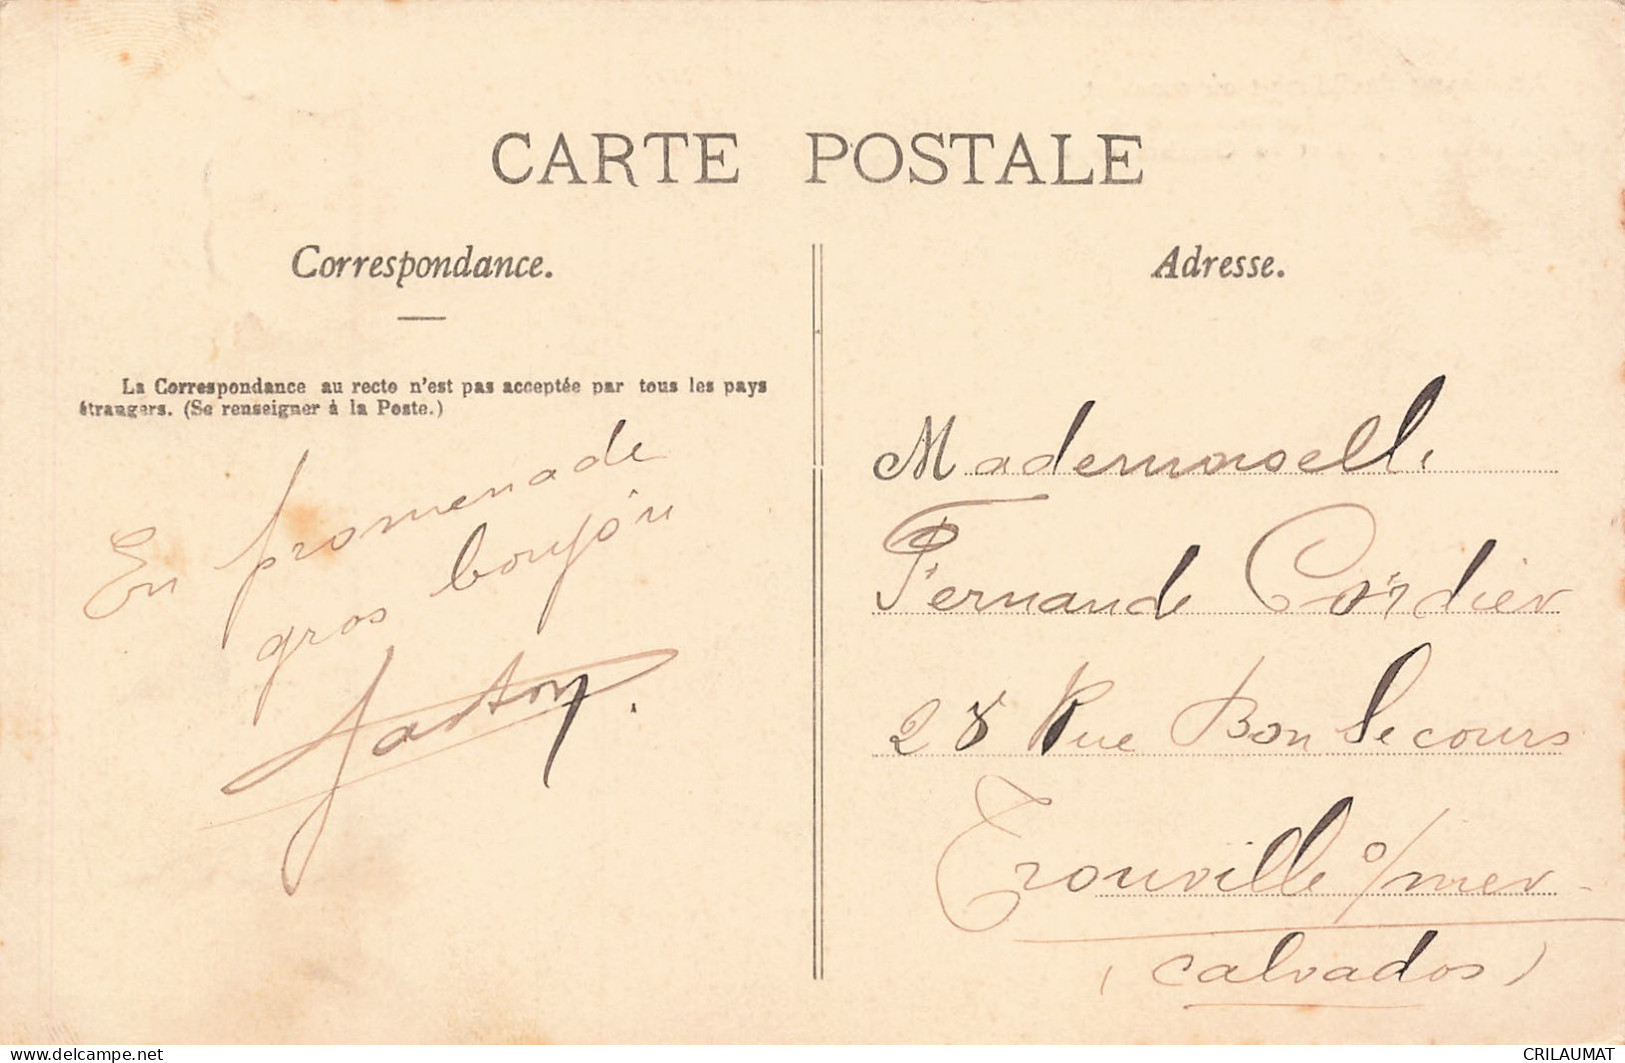 CARTE POSTALE
Correspondance.
La Correspondance au recto n'est pas acceptée par tous les pays
étrangers. (Se renseigner à la Poste.)
En promenade
gros boujou
Gaston.
Adresse.
Mademoiselle
Fernande Cordier
28 Rue Bon Secours
Trouville s/mer
(Calvados)
www.delcampe.net
CRILAUMAT